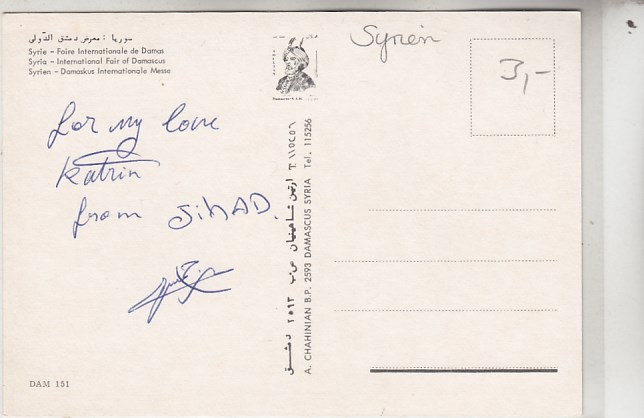 سوريا : معرض دمشق الدولي
Syrie – Foire Internationale de Damas
Syria – International Fair of Damascus
Syrien – Damaskus Internationale Messe
Syrien
3,-
For my love
Katrin
from JihAD.
ارتين شاهينيان ص.ب ٢٥٩٣ دمشق T. ١١٥٢٥٦
A. CHAHINIAN B.P. 2593 DAMASCUS SYRIA Tel. 115256
DAM 151